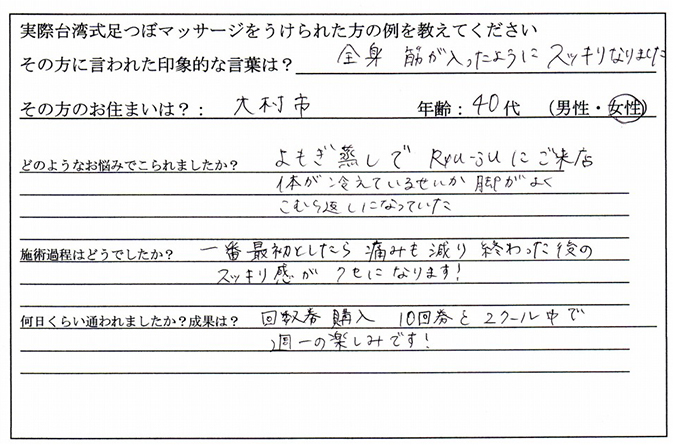 実際台湾式足つぼマッサージをうけられた方の例を教えてください
その方に言われた印象的な言葉は？ 全身 筋が入ったように スッキリなりました
その方のお住まいは？： 大村市 年齢：40代 （男性・女性）
どのようなお悩みでこられましたか？ よもぎ蒸しで Ryu-Juに ご来店
体が冷えているせいか 脚がよく
こむら返しになっていた
施術過程はどうでしたか？ 一番最初としたら 痛みも減り 終わった後の
スッキリ感が クセになります！
何日くらい通われましたか？成果は？ 回数券購入 10回券を2クール中で
週一の楽しみです！